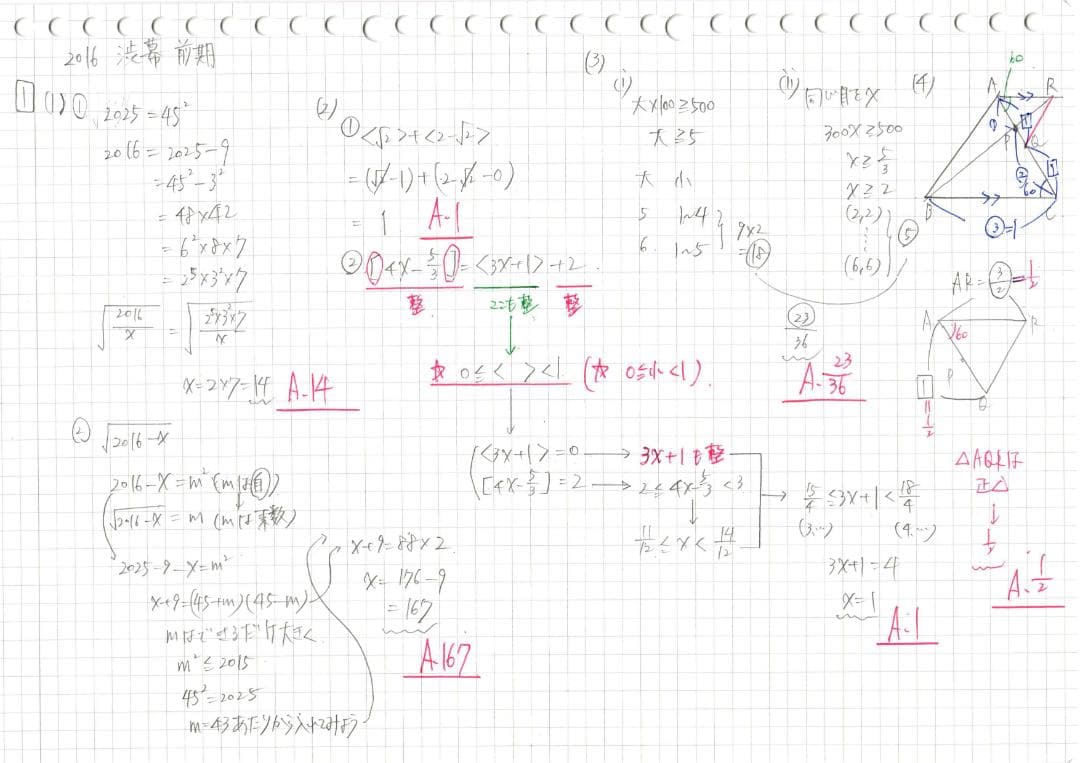 2016 渋幕 前期
1 (1) ① 2025 = 45²
2016 = 2025 - 9
= 45² - 3²
= 48 × 42
= 6² × 8 × 7
= 2⁵ × 3² × 7
√(2016/x) = √(2⁵×3²×7/x)
x = 2×7 = 14 A.14
② √(2016-x)
2016 - x = m² (mは自)
√(2016-x) = m (mは素数)
2025 - 9 - x = m²
x + 9 = (45+m)(45-m)
mはできるだけ大きく
m² ≦ 2015
45² = 2025
m = 43あたりから入れてみよう
x + 9 = 88 × 2
x = 176 - 9
= 167
A.167
(2)
① <√2> + <2-√2>
= (√2-1) + (2-√2-0)
= 1 A.1
② [4x - 5/3] = <3x+1> + 2
整 ここも整 整
☆ 0 ≦ < > < 1 (☆ 0≦小<1)
<3x+1> = 0 → 3x+1も整
[4x-5/3] = 2 → 2 ≦ 4x-5/3 < 3
11/12 ≦ x < 14/12
15/4 ≦ 3x+1 < 18/4
(3,…) (4,…)
3x+1 = 4
x = 1
A.1
(3)
(i)
大×100 ≧ 500
大 ≧ 5
大 小
5 1~4
6 1~5
9×2
= 18
(ii) 同じ目をx
300x ≧ 500
x ≧ 5/3
x ≧ 2
(2,2)
⋮
(6,6)
⑤
23/36
A.23/36
(4)
60
A R
P
Q
1
②
1
60
B C
③=1
AR = 3/2 = 1/2
A R
60
P
Q
1
=
1/2
△AQRは
正△
↓
1/2
A.1/2